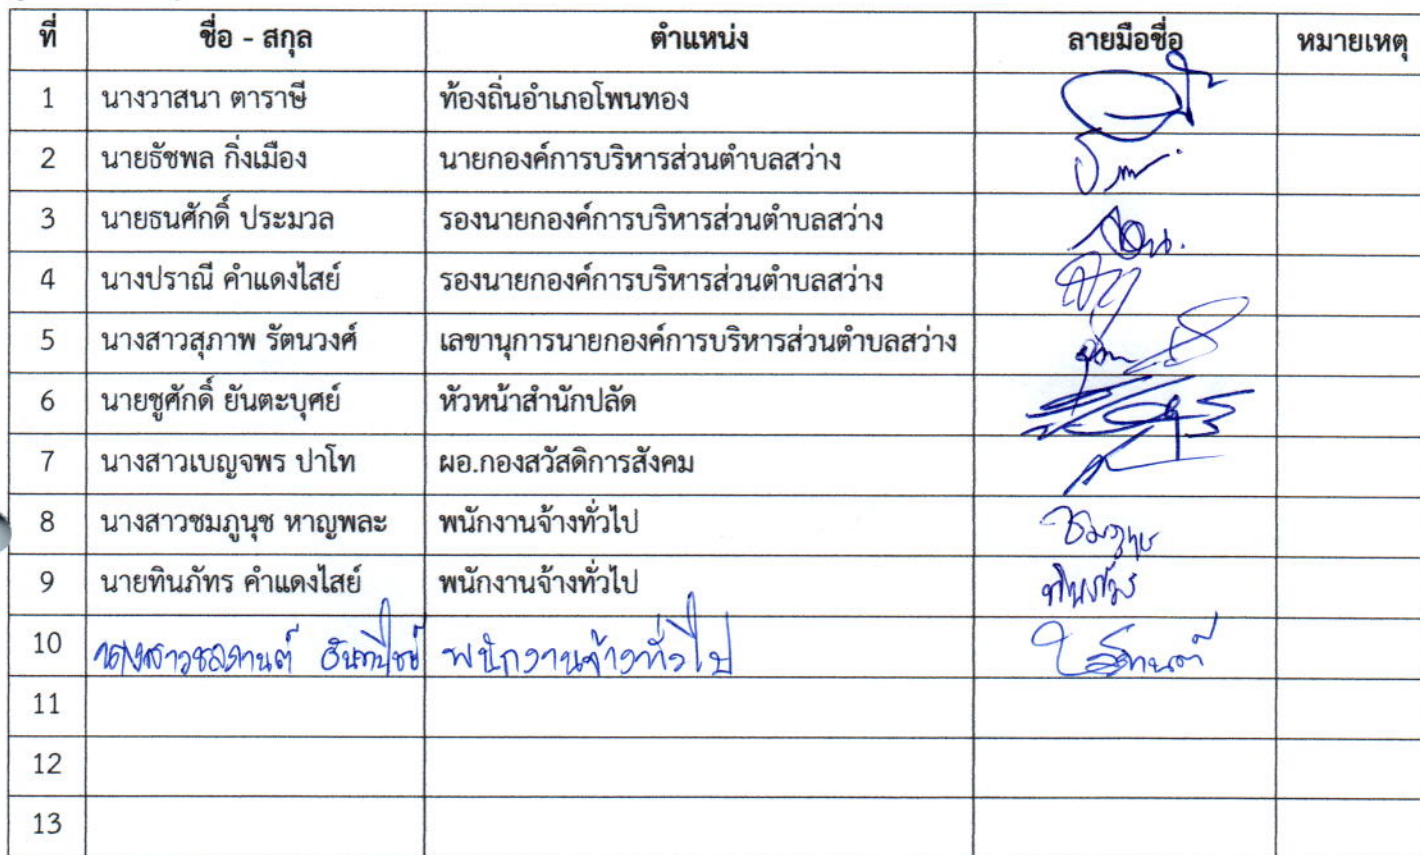 ที่ ชื่อ - สกุล ตำแหน่ง ลายมือชื่อ หมายเหตุ
1 นางวาสนา ตาราษี ท้องถิ่นอำเภอโพนทอง
2 นายธัชพล กิ่งเมือง นายกองค์การบริหารส่วนตำบลสว่าง
3 นายธนศักดิ์ ประมวล รองนายกองค์การบริหารส่วนตำบลสว่าง
4 นางปราณี คำแดงไสย์ รองนายกองค์การบริหารส่วนตำบลสว่าง
5 นางสาวสุภาพ รัตนวงศ์ เลขานุการนายกองค์การบริหารส่วนตำบลสว่าง
6 นายชูศักดิ์ ยันตะบุศย์ หัวหน้าสำนักปลัด
7 นางสาวเบญจพร ปาโท ผอ.กองสวัสดิการสังคม
8 นางสาวชมภูนุช หาญพละ พนักงานจ้างทั่วไป ชมภูนุช
9 นายทินภัทร คำแดงไสย์ พนักงานจ้างทั่วไป ทินภัทร
10 นางสาวชลกานต์ พนักงานจ้างทั่วไป
11
12
13